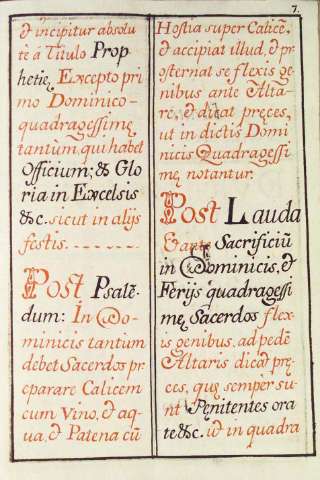 7.
& incipitur absolu
te á Titulo Prop
hetię, Excepto pri
mo Dominico
quadragessimę
tantùm, qui habet
Officium; & Glo
ria in Excelsis
&c. sicut in alijs
festis.
Post Psalē-
dum: In Do-
minicis tantùm
debet Sacerdos pr
eparare Calicem
cum Vino, & aq-
ua, & Patena cū
Hostia super Calicē,
& accipiat illud, & pr
osternat se flexis ge
nibus ante Alta-
re, & dicat pręces,
ut in dictis Domi
nicis Quadragessi
mę notantur.
Post Lauda
& ante Sacrificiū
in Dominicis, &
Ferijs quadragessi
mę, Sacerdos flex-
is genibus, ad pedē
Altaris dicat prę-
ces, quę semper su-
nt Penitentes ora
te &c. ut in quadra